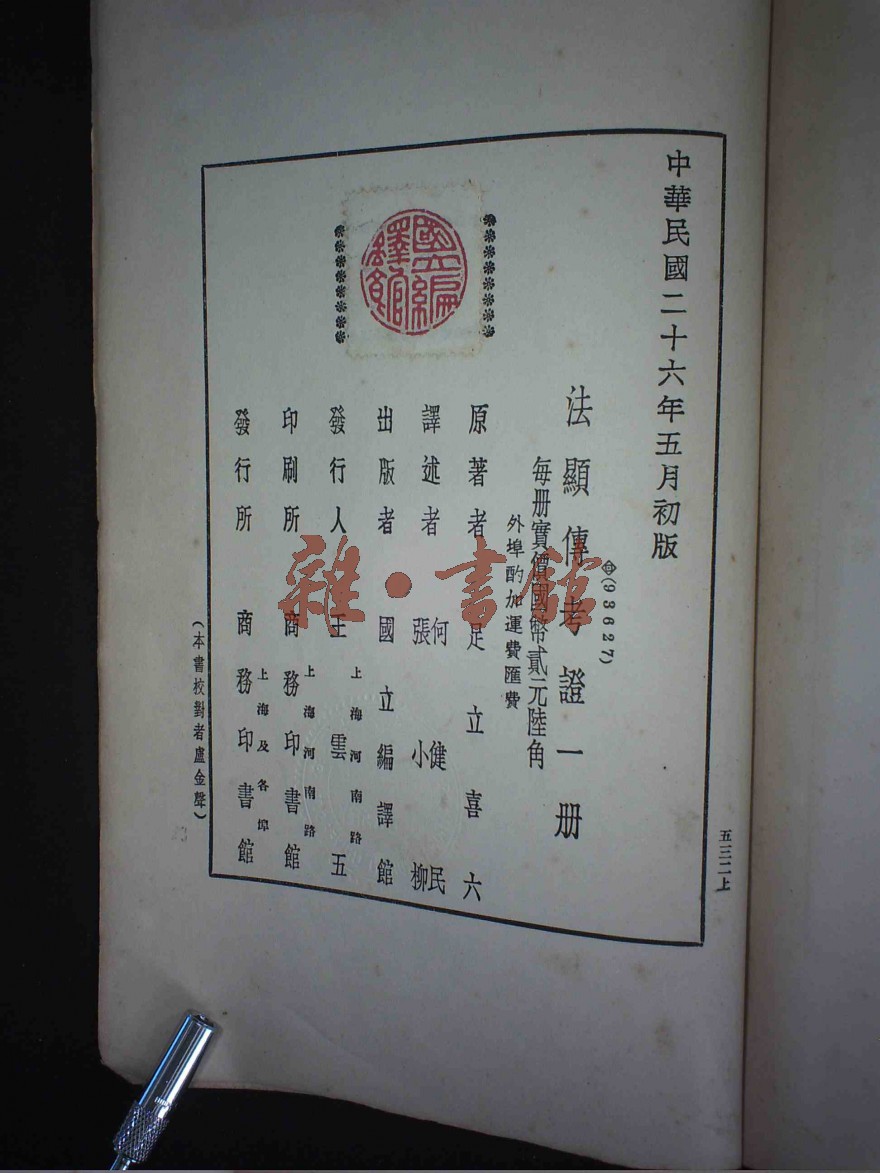 中華民國二十六年五月初版
(93627)
法顯傳考證一册
每册實價國幣貳元陸角
外埠酌加運費匯費
原著者 足立喜六
譯述者 何健民
張小柳
出版者 國立編譯館
發行人 王雲五
上海河南路
印刷所 商務印書館
上海河南路
發行所 商務印書館
上海及各埠
(本書校對者盧金聲)
五三二上
國立編譯館
雜·書館